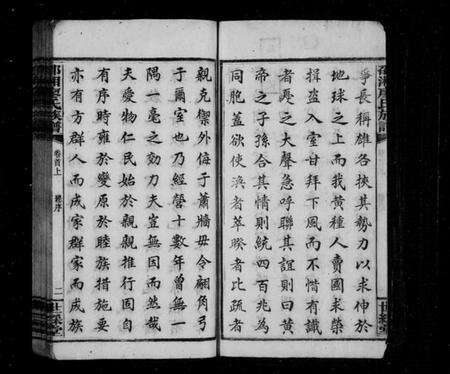 爭長稱雄各挾其勢力以求伸於
地球之上而我黃種人賣國求榮
揖盜入室甘拜下風而不惜有識
者戹之大聲急呼聯其誼則曰黃
帝之子孫合其情則統四百兆為
同胞蓋欲使渙者萃睽者比疏者
親克禦外侮于蕭牆毋令翩角弓
于爾室也乃經營十數年曾無一
隅一毫之効力夫豈無因而然哉
夫愛物仁民始於親親推行固自
有序時雍於變原於睦族措施要
亦有方群人而成家群家而成族
邵湘廖氏族譜
卷首上
總序
二
世綵堂